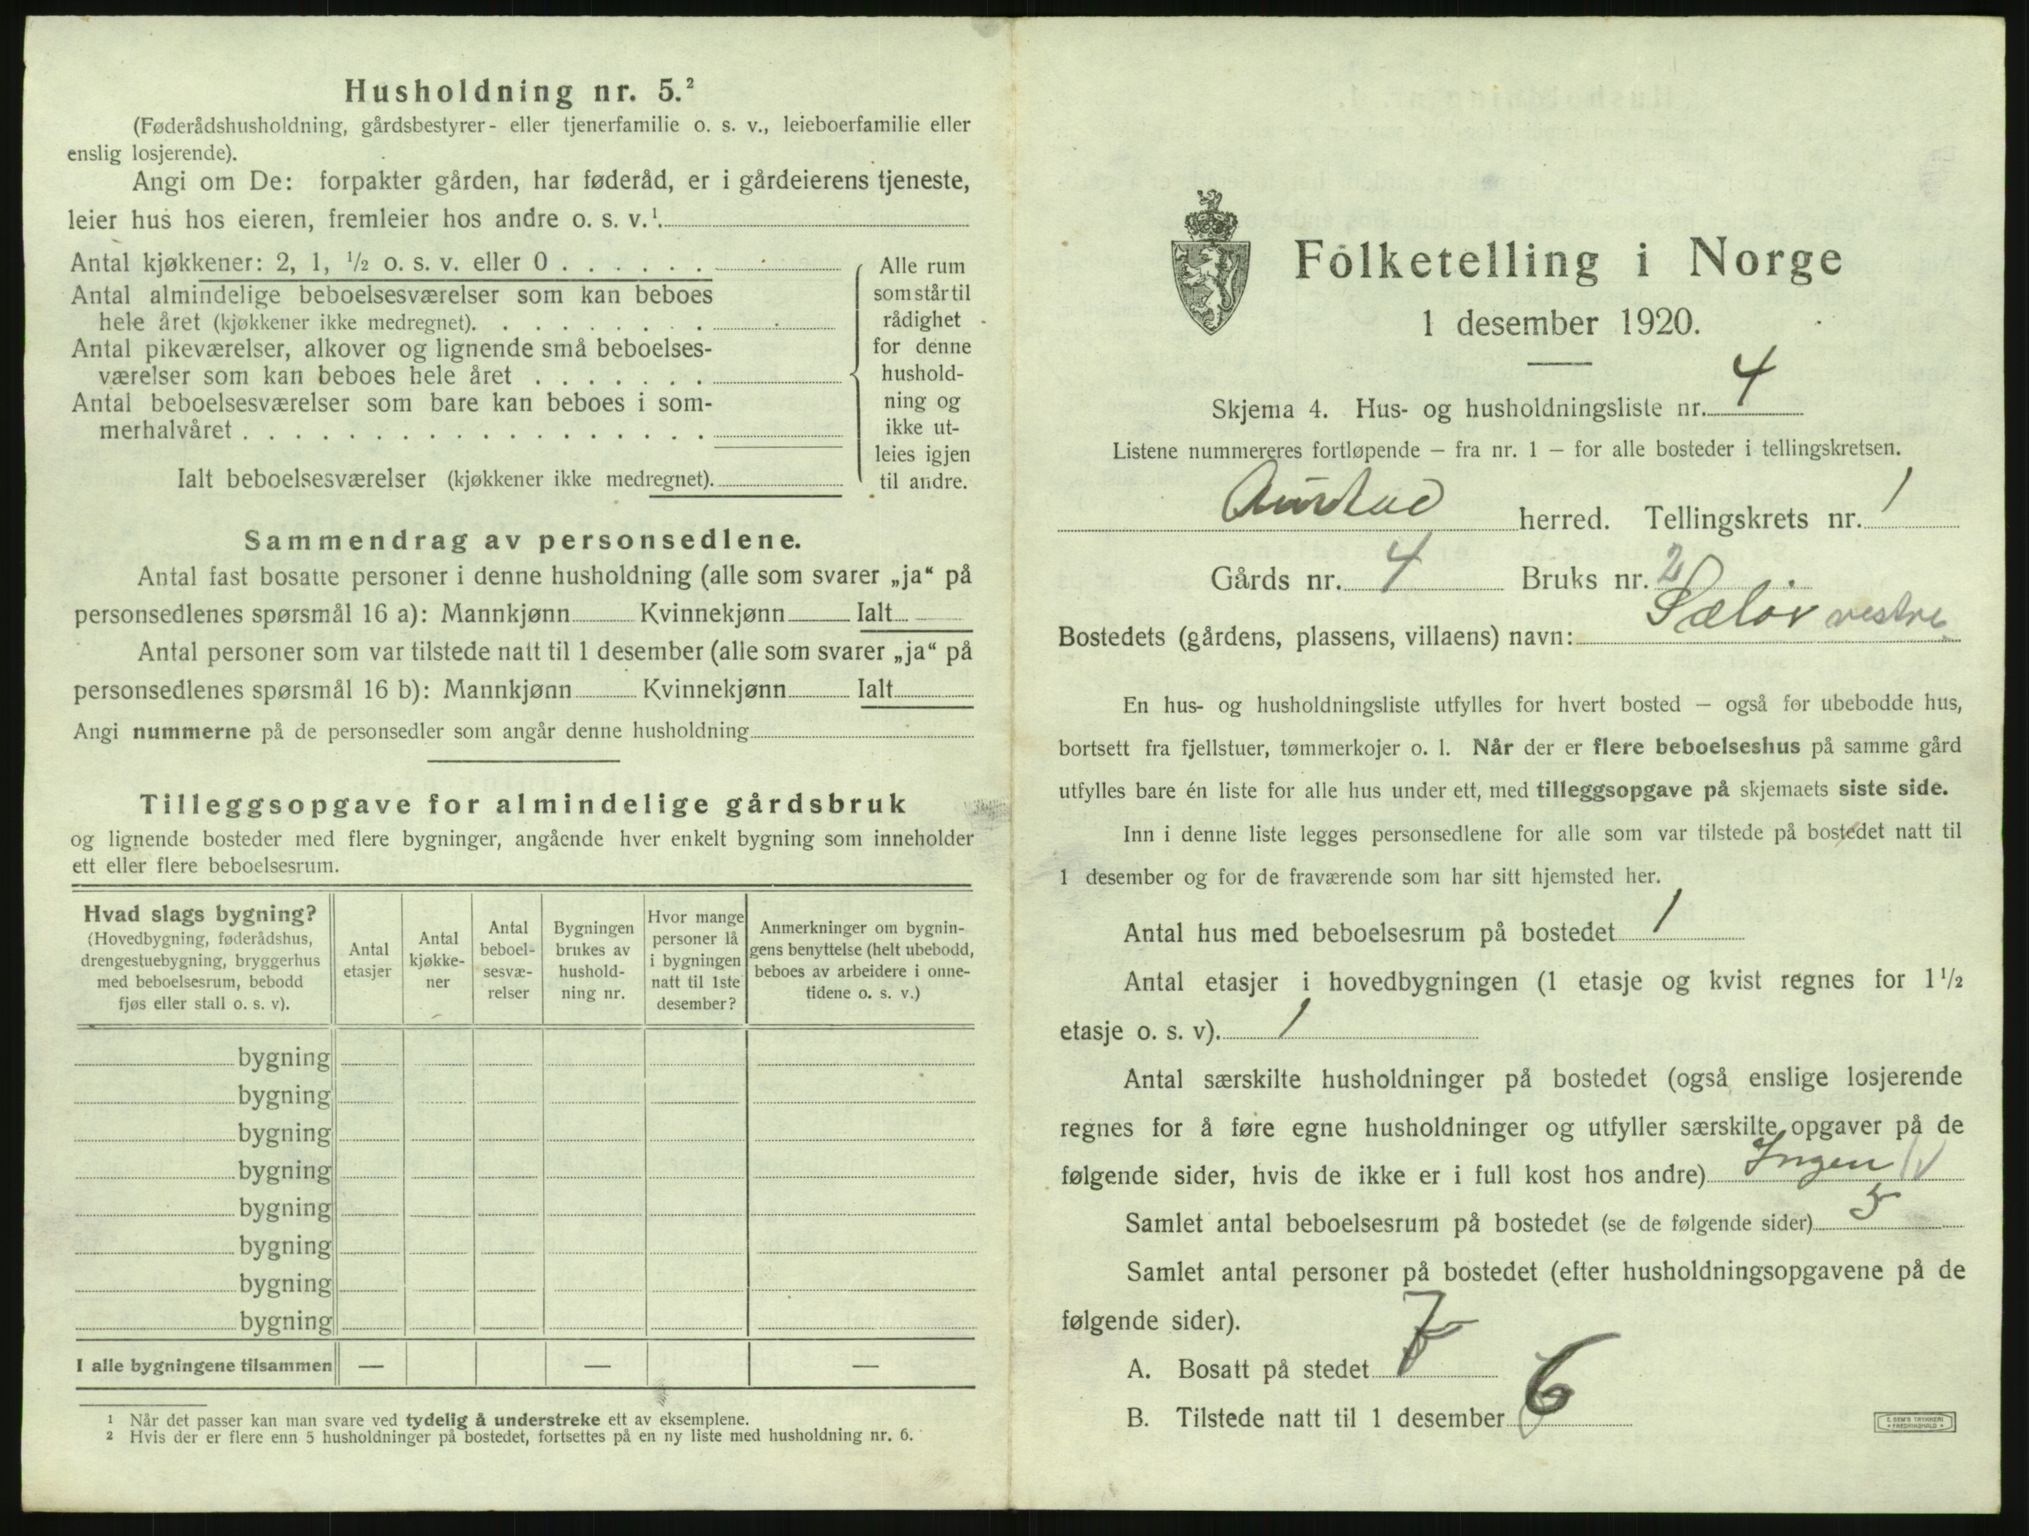 Husholdning nr. 5.²
(Føderådshusholdning, gårdsbestyrer- eller tjenerfamilie o. s. v., leieboerfamilie eller
enslig losjerende).
Angi om De: forpakter gården, har føderåd, er i gårdeierens tjeneste,
leier hus hos eieren, fremleier hos andre o. s. v.¹.
Antal kjøkkener: 2, 1, ½ o. s. v. eller 0 . . . . . .
Antal almindelige beboelsesværelser som kan beboes
hele året (kjøkkener ikke medregnet). . . . . . . . .
Antal pikeværelser, alkover og lignende små beboelses-
værelser som kan beboes hele året . . . . . . .
Antal beboelsesværelser som bare kan beboes i som-
merhalvåret . . . . . . . . . . . . . . . . . .
Ialt beboelsesværelser (kjøkkener ikke medregnet).
Alle rum
som står til
rådighet
for denne
hushold-
ning og
ikke ut-
leies igjen
til andre.
Sammendrag av personsedlene.
Antal fast bosatte personer i denne husholdning (alle som svarer „ja“ på
personsedlenes spørsmål 16 a): Mannkjønn Kvinnekjønn Ialt
Antal personer som var tilstede natt til 1 desember (alle som svarer „ja“ på
personsedlenes spørsmål 16 b): Mannkjønn Kvinnekjønn Ialt
Angi nummerne på de personsedler som angår denne husholdning
Tilleggsopgave for almindelige gårdsbruk
og lignende bosteder med flere bygninger, angående hver enkelt bygning som inneholder
ett eller flere beboelsesrum.
Hvad slags bygning?
(Hovedbygning, føderådshus,
drengestuebygning, bryggerhus
med beboelsesrum, bebodd
fjøs eller stall o. s. v).
Antal
etasjer
Antal
kjøkke-
ner
Antal
beboel-
sesvæ-
relser
Bygningen
brukes av
hushold-
ning nr.
Hvor mange
personer lå
i bygningen
natt til 1ste
desember?
Anmerkninger om bygnin-
gens benyttelse (helt ubebodd,
beboes av arbeidere i onne-
tidene o. s. v.)
bygning
bygning
bygning
bygning
bygning
bygning
bygning
bygning
I alle bygningene tilsammen — — —
¹ Når det passer kan man svare ved tydelig å understreke ett av eksemplene.
² Hvis der er flere enn 5 husholdninger på bostedet, fortsettes på en ny liste med husholdning nr. 6.
Folketelling i Norge
1 desember 1920.
Skjema 4. Hus- og husholdningsliste nr. 4
Listene nummereres fortløpende – fra nr. 1 – for alle bosteder i tellingskretsen.
herred. Tellingskrets nr. 1
Gårds nr. 4 Bruks nr. 2
Bostedets (gårdens, plassens, villaens) navn: Sælör vestre
En hus- og husholdningsliste utfylles for hvert bosted – også for ubebodde hus,
bortsett fra fjellstuer, tømmerkojer o. l. Når der er flere beboelseshus på samme gård
utfylles bare én liste for alle hus under ett, med tilleggsopgave på skjemaets siste side.
Inn i denne liste legges personsedlene for alle som var tilstede på bostedet natt til
1 desember og for de fraværende som har sitt hjemsted her.
Antal hus med beboelsesrum på bostedet 1
Antal etasjer i hovedbygningen (1 etasje og kvist regnes for 1 ½
etasje o. s. v). 1
Antal særskilte husholdninger på bostedet (også enslige losjerende
regnes for å føre egne husholdninger og utfyller særskilte opgaver på de
følgende sider, hvis de ikke er i full kost hos andre) Ingen 1 v
Samlet antal beboelsesrum på bostedet (se de følgende sider) 5
Samlet antal personer på bostedet (efter husholdningsopgavene på de
følgende sider).
A. Bosatt på stedet 7
B. Tilstede natt til 1 desember 6
E. SEM'S TRYKKERI
FREDRIKSHALD